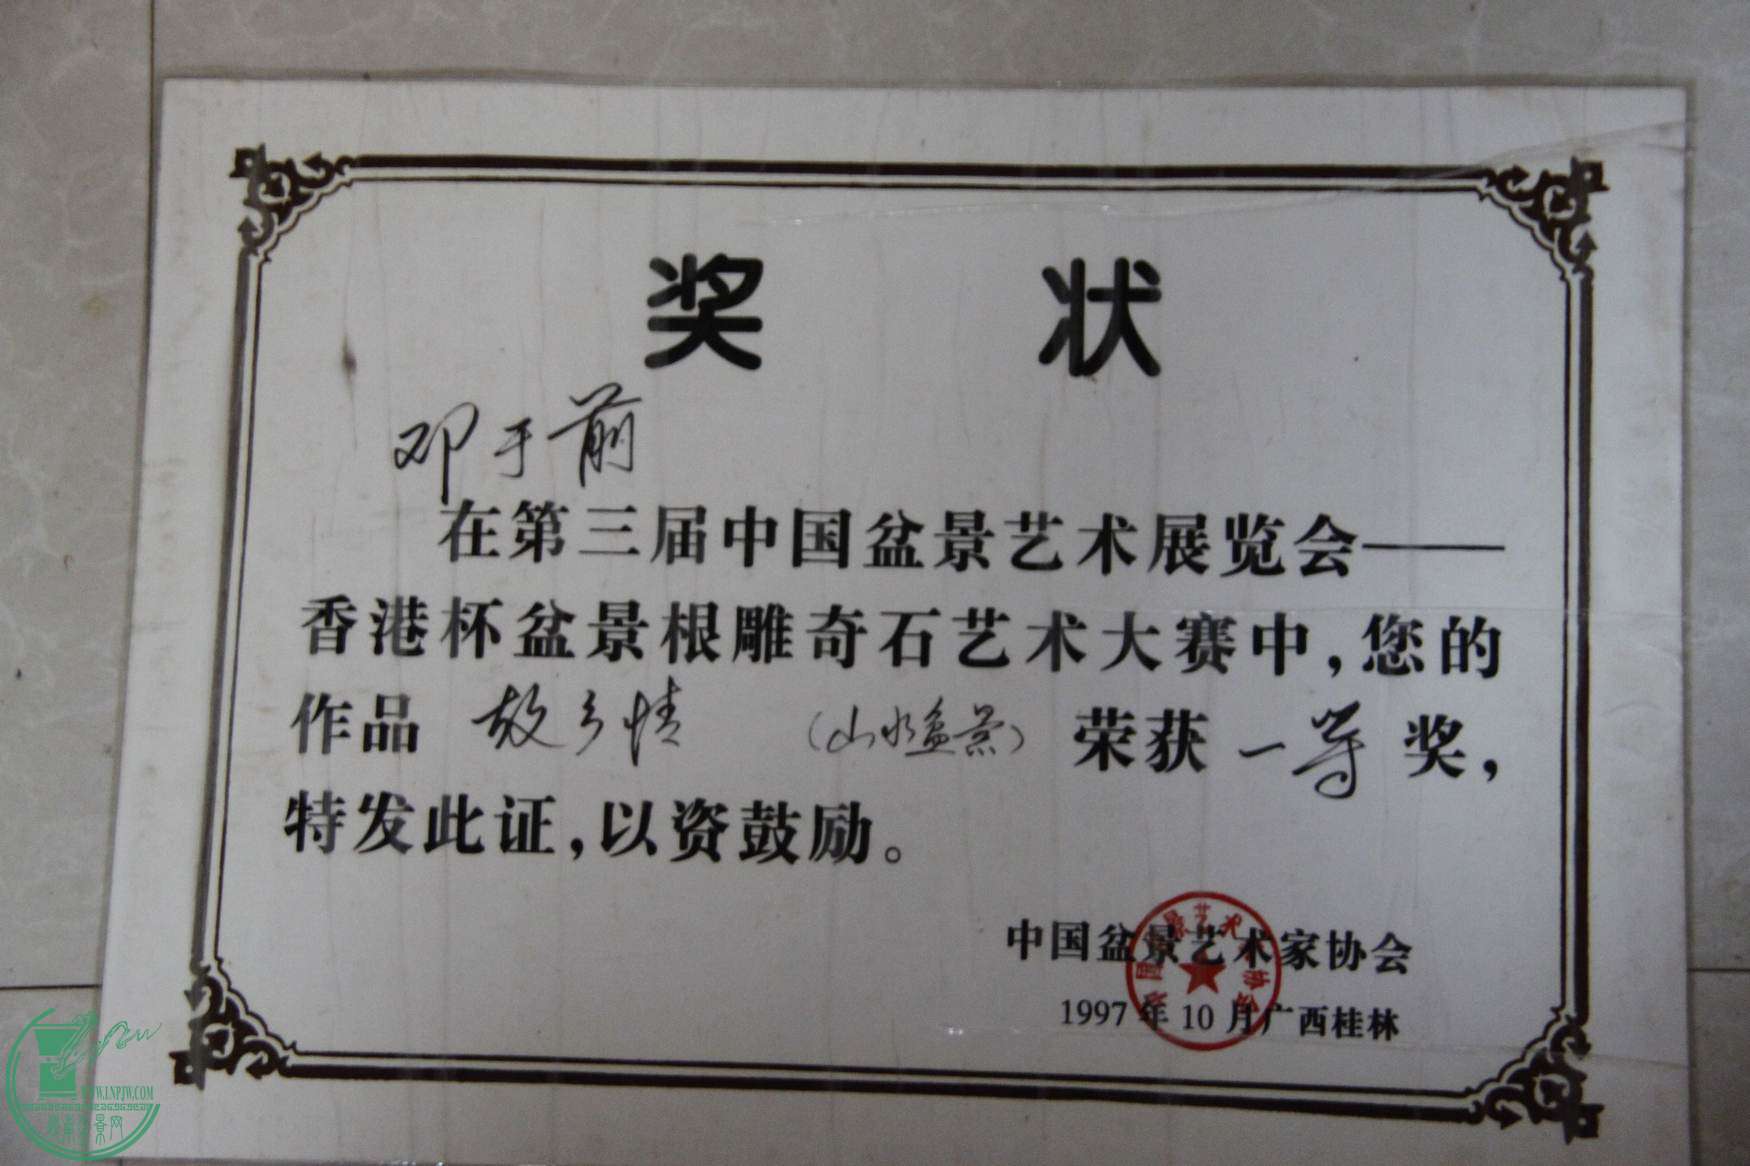 奖 状
邓于前
在第三届中国盆景艺术展览会——
香港杯盆景根雕奇石艺术大赛中，您的
作品 故乡情 （山水盆景） 荣获 一等 奖，
特发此证，以资鼓励。
中国盆景艺术家协会
1997年10月广西桂林
WWW.LNPJW.COM